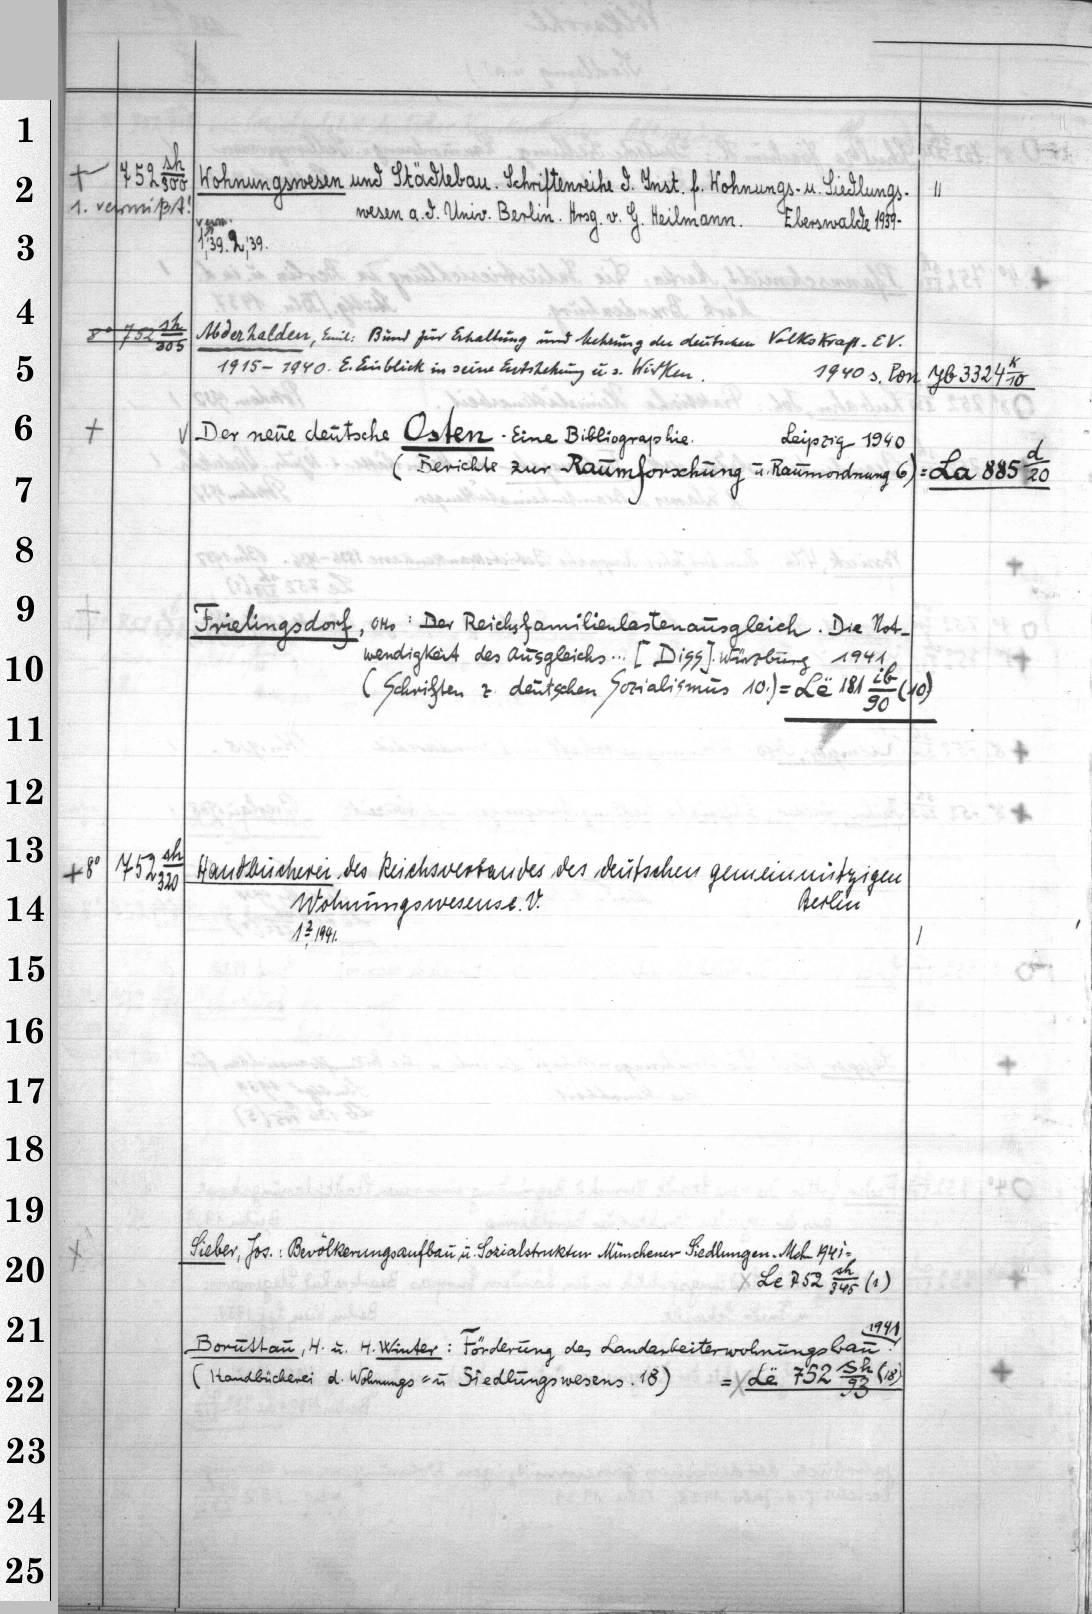 1
2
3
4
5
6
7
8
9
10
11
12
13
14
15
16
17
18
19
20
21
22
23
24
25
752 sh/300 Wohnungswesen und Städtebau. Schriftenreihe d. Inst. f. Wohnungs- u. Siedlungs- "
1. vermißt! wesen a. d. Univ. Berlin. Hrsg. v. G. Heilmann. Eberswalde 1939-
1,'39. 2,'39.
8° 752 sh/305 Abderhalden, Emil: Bund für Erhaltung und Mehrung der deutschen Volkskraft. E.V.
1915-1940. E. Einblick in seine Entstehung u. s. Wirken. 1940 s. Pon Yb 3324 k/10
+ √ Der neue deutsche Osten. Eine Bibliographie. Leipzig 1940
(Berichte zur Raumforschung u. Raumordnung 6) = La 885 d/20
+ Frielingsdorf, Otto: Der Reichsfamilienlastenausgleich. Die Not-
wendigkeit des Ausgleichs... [Diss]. Würzburg 1941
(Schriften z. deutschen Sozialismus 10.) = Lë 181 ib/90 (10)
+ 8° 752 sh/320 Handbücherei des Reichsverbandes des deutschen gemeinnützigen
Wohnungswesens e. V. Berlin
1 2, 1941.
x Sieber, Jos.: Bevölkerungsaufbau u. Sozialstruktur Münchener Siedlungen. Mch 1941 =
x Le 752 sh/345 (1)
1941
Boruttau, H. u. H. Winter: Förderung des Landarbeiterwohnungsbau
(Handbücherei d. Wohnungs = u Siedlungswesens. 18) = x Lë 752 sh/93 (18)